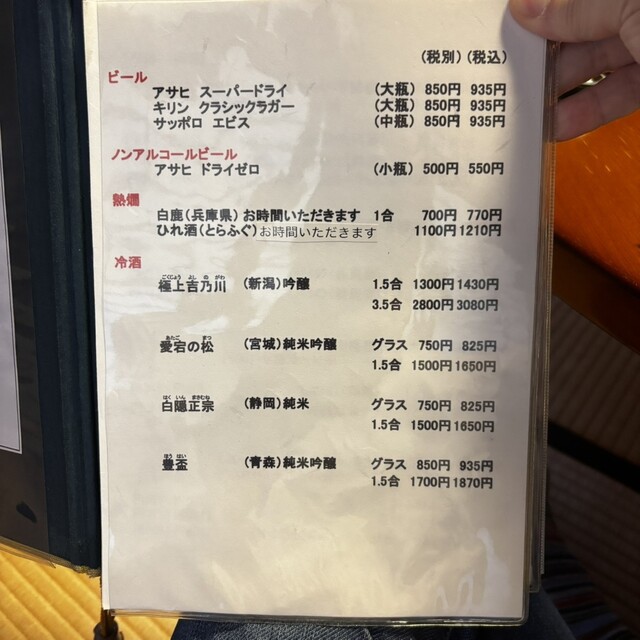 (税別) (税込)
ビール
アサヒ スーパードライ (大瓶) 850円 935円
キリン クラシックラガー (大瓶) 850円 935円
サッポロ ヱビス (中瓶) 850円 935円
ノンアルコールビール
アサヒ ドライゼロ (小瓶) 500円 550円
熱燗
白鹿(兵庫県)お時間いただきます 1合 700円 770円
ひれ酒(とらふぐ)お時間いただきます 1100円 1210円
冷酒
ごくじょう よし の がわ
極上吉乃川 (新潟)吟醸 1.5合 1300円 1430円
3.5合 2800円 3080円
あたご まつ
愛宕の松 (宮城)純米吟醸 グラス 750円 825円
1.5合 1500円 1650円
はく いん まさむね
白隠正宗 (静岡)純米 グラス 750円 825円
1.5合 1500円 1650円
ほう はい
豊盃 (青森)純米吟醸 グラス 850円 935円
1.5合 1700円 1870円